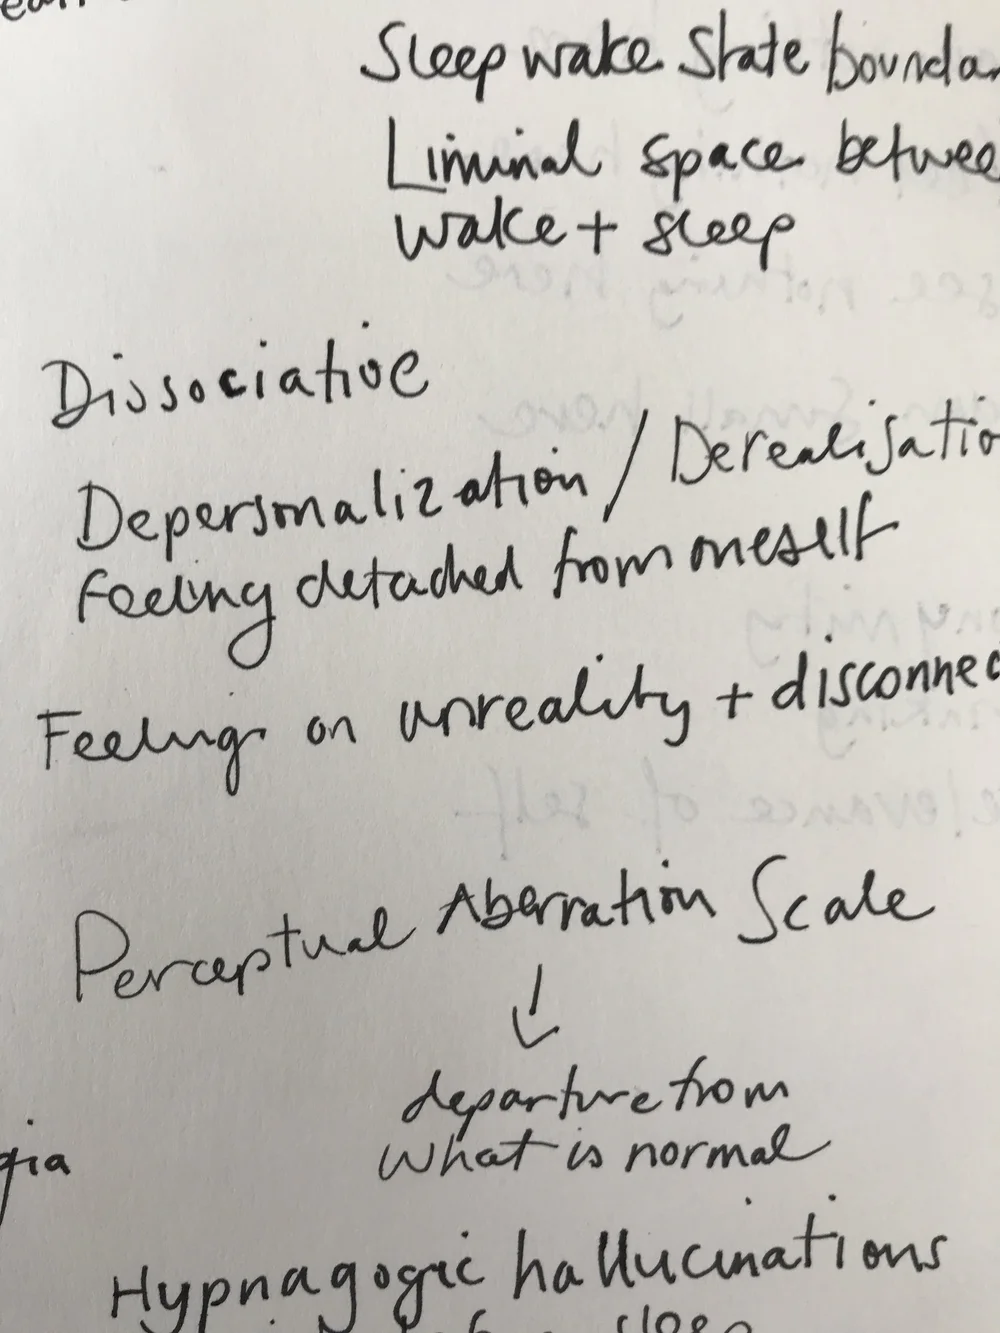 Sleep wake state bounda
Liminal space betwee
wake + sleep
Dissociative
Depersonalization / Derealisatio
feeling detached from oneself
Feelings on unreality + disconnec
Perceptual Aberration Scale
↓
departure from
what is normal
gia
Hypnagogic hallucinations
sleep